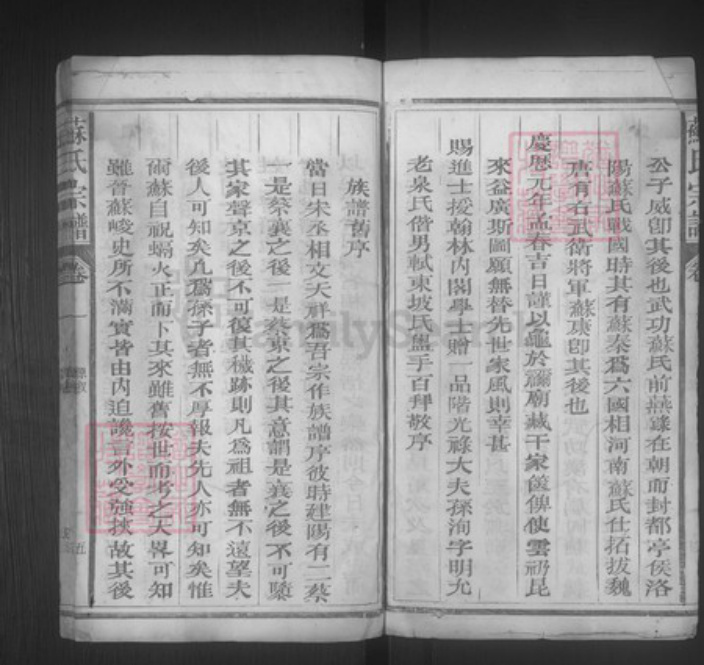 公子威卽其後也武功蘇氏前燕鑠在朝而封都亭侯洛
陽蘇氏戰國時其有蘇秦爲六國相河南蘇氏仕拓拔魏
唐有右武衛將軍蘇康卽其後也
慶歷元年孟春吉日謹以龕於禰廟藏干家篋俾使雲礽昆
來益廣斯圖願無替先世家風則幸甚
賜進士授翰林內閣學士贈一品階光祿大夫孫洵字明允
老泉氏偕男軾東坡氏盥手百拜敬序
族譜舊序
當日宋丞相文天祥爲吾宗作族譜序彼時建陽有二蔡
一是蔡襄之後一是蔡京之後其意謂是襄之後不可墜
其家聲京之後不可復其穢跡則凡爲祖者無不遠望夫
後人可知矣凡爲孫子者無不厚報夫先人亦可知矣惟
爾蘇自祝螎火正而下其來雖舊按世而考之大畧可知
雖晉蘇峻史所不滿實皆由內迫讒言外受強挾故其後
蘇氏宗譜
卷一
FamilySearch